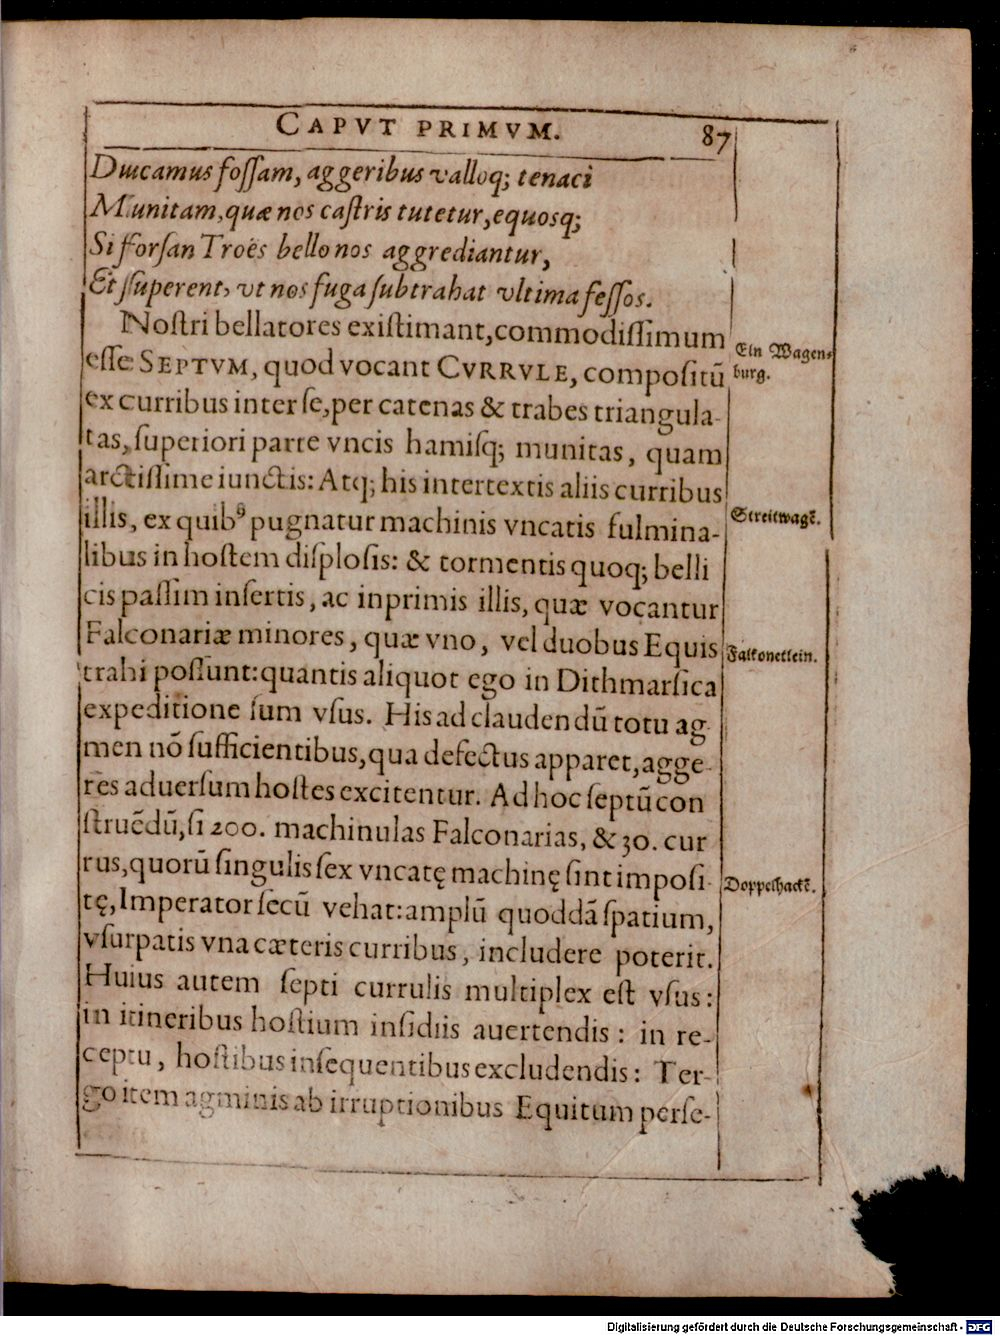 CAPVT PRIMVM. 87
Ducamus foſſam, aggeribus valloq; tenaci
Munitam, quæ nos caſtris tutetur, equosq;
Si forſan Troës bello nos aggrediantur,
Et ſuperent, vt nos fuga ſubtrahat vltima feſſos.
Noſtri bellatores exiſtimant, commodiſſimum
eſſe SEPTVM, quod vocant CVRRVLE, compoſitū
ex curribus inter ſe, per catenas & trabes triangula-
tas, ſuperiori parte vncis hamiſq; munitas, quam
arctiſſime iunctis: Atq; his intertextis aliis curribus
illis, ex quibꝰ pugnatur machinis vncatis fulmina-
libus in hoſtem diſploſis: & tormentis quoq; belli
cis paſſim inſertis, ac inprimis illis, quæ vocantur
Falconariæ minores, quæ vno, vel duobus Equis
trahi poſſunt: quantis aliquot ego in Dithmarſica
expeditione ſum vſus. His ad claudendū totu ag-
men nō ſufficientibus, qua defectus apparet, agge-
res aduerſum hoſtes excitentur. Ad hoc ſeptū con
ſtruēdū, ſi 200. machinulas Falconarias, & 30. cur
rus, quorū ſingulis ſex vncatę machinę ſint impoſi-
tę, Imperator ſecū vehat: amplū quoddā ſpatium,
vſurpatis vna cæteris curribus, includere poterit.
Huius autem ſepti currulis multiplex eſt vſus:
in itineribus hoſtium inſidiis auertendis: in re-
ceptu, hoſtibus inſequentibus excludendis: Ter-
go item agminis ab irruptionibus Equitum perſe-
Ein Wagen-
burg.
Streitwagē.
Falkonetlein.
Doppelhackē.
Digitalisierung gefördert durch die Deutsche Forschungsgemeinschaft - DFG